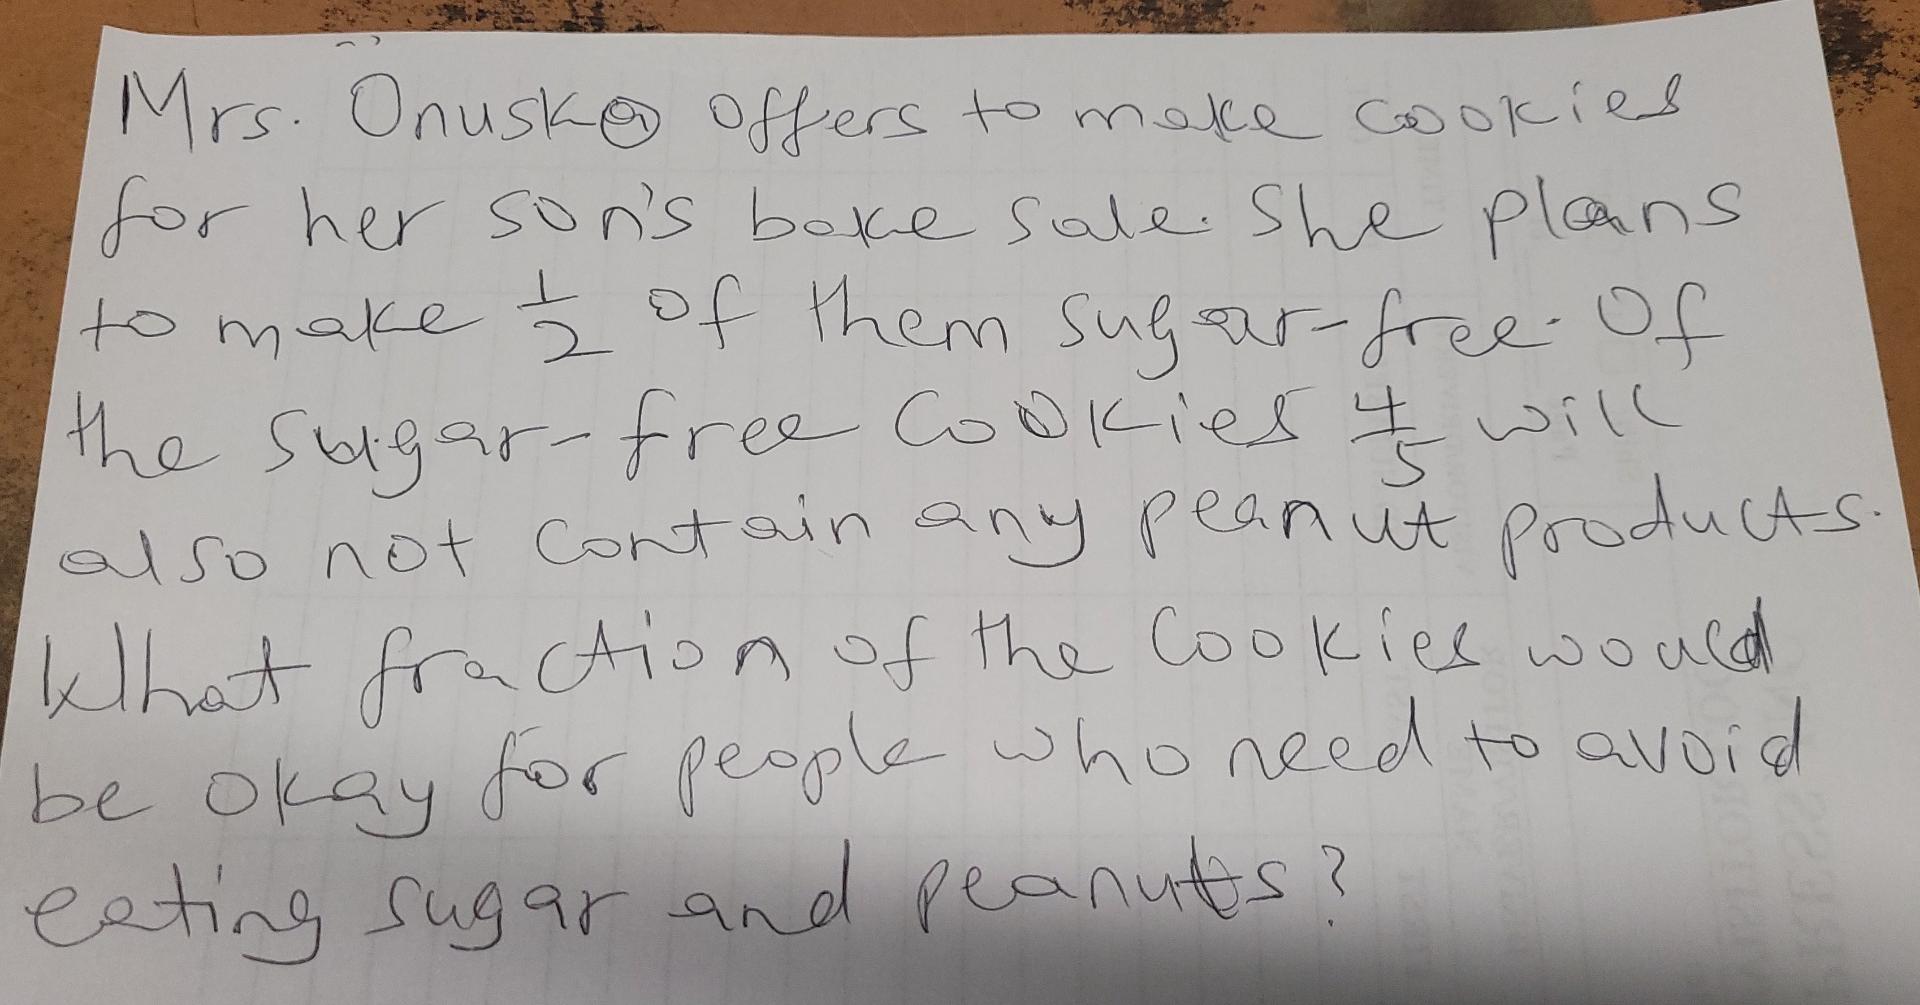 Mrs. Onuska offers to make cookies
for her son's bake sale. She plans
to make 1/2 of them sugar-free. Of
the sugar-free cookies 4/5 will
also not contain any peanut products.
What fraction of the cookies would
be okay for people who need to avoid
eating sugar and peanuts?